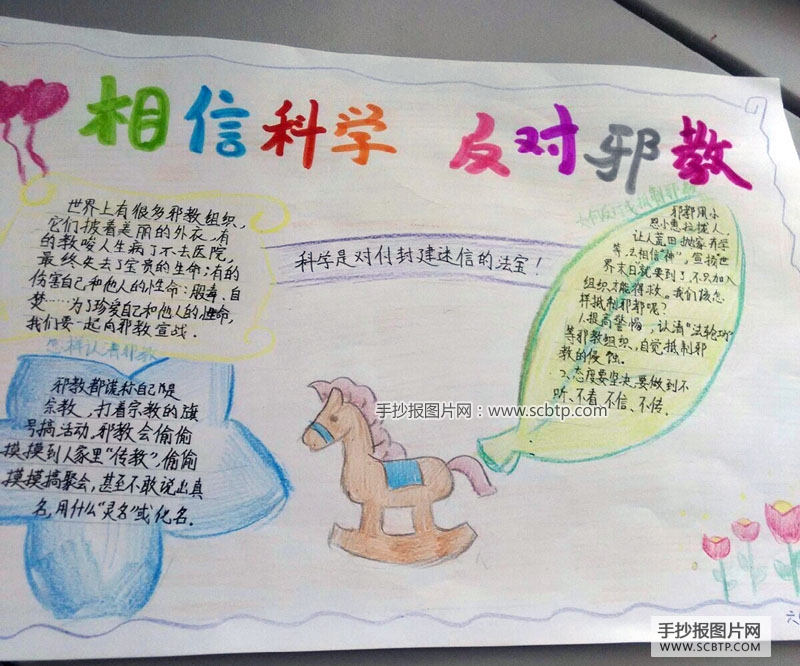 相信科学 反对邪教
世界上有很多邪教组织,
它们披着美丽的外衣,有
的教唆人生病了不去医院,
最终失去了宝贵的生命;有的
伤害自己和他人的性命:服毒、自
焚……为了珍爱自己和他人的性命,
我们要一起向邪教宣战.
科学是对付封建迷信的法宝!
怎样认清邪教
邪教都谎称自己是
宗教,打着宗教的旗
号搞活动,邪教会偷偷
摸摸到人家里“传教”,偷偷
摸摸搞聚会,甚至不敢说出真
名,用什么“灵名”或化名.
邪都用小
恩小惠拉拢人
让人荒田抛家弃学
等,去相信“神”,宣扬世
界末日就要到了,不只加入
组织才能得救。我们该怎
样抵制邪都呢?
1.提高警惕,认清“法轮功”
等邪教组织、自觉抵制邪
教的侵蚀.
2、态度要坚决,要做到不
听、不看、不信、不传.
手抄报图片网:www.scbtp.com
六
手抄报图片网
WWW.SCBTP.COM